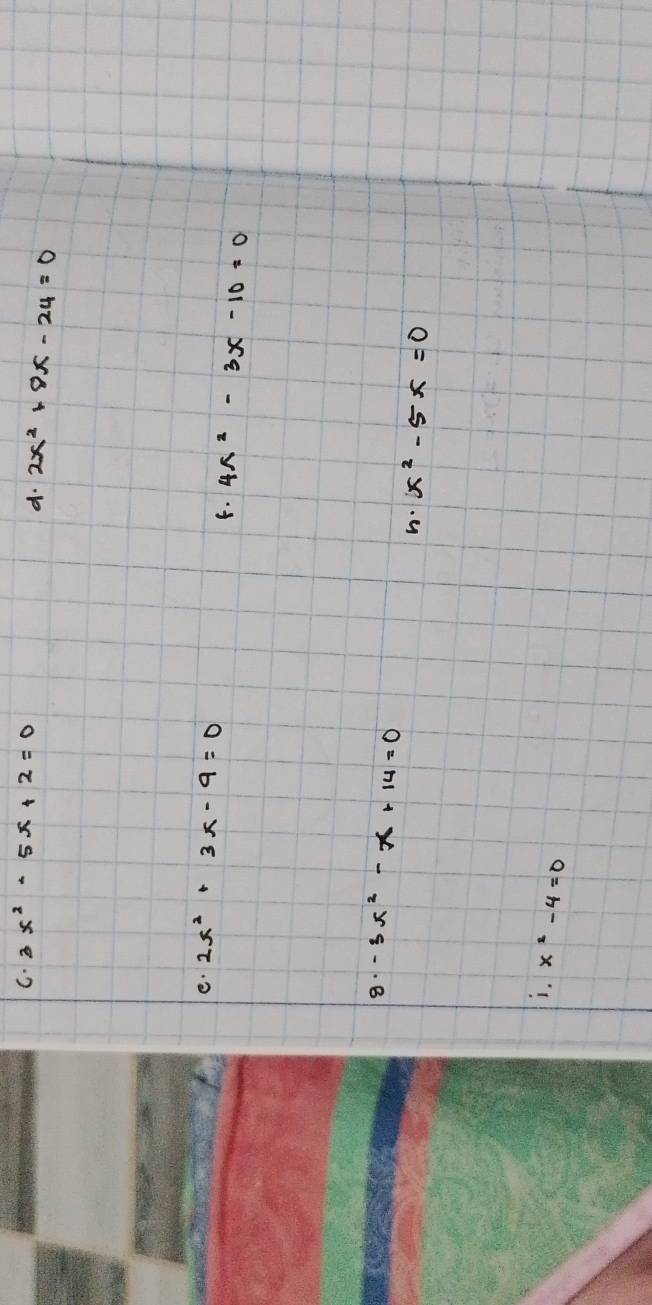 c. 3x² - 5x + 2 = 0
d. 2x² + 8x - 24 = 0
e. 2x² + 3x - 9 = 0
f. 4x² - 3x - 10 = 0
g. -3x² - x + 14 = 0
h. x² - 5x = 0
i. x² - 4 = 0